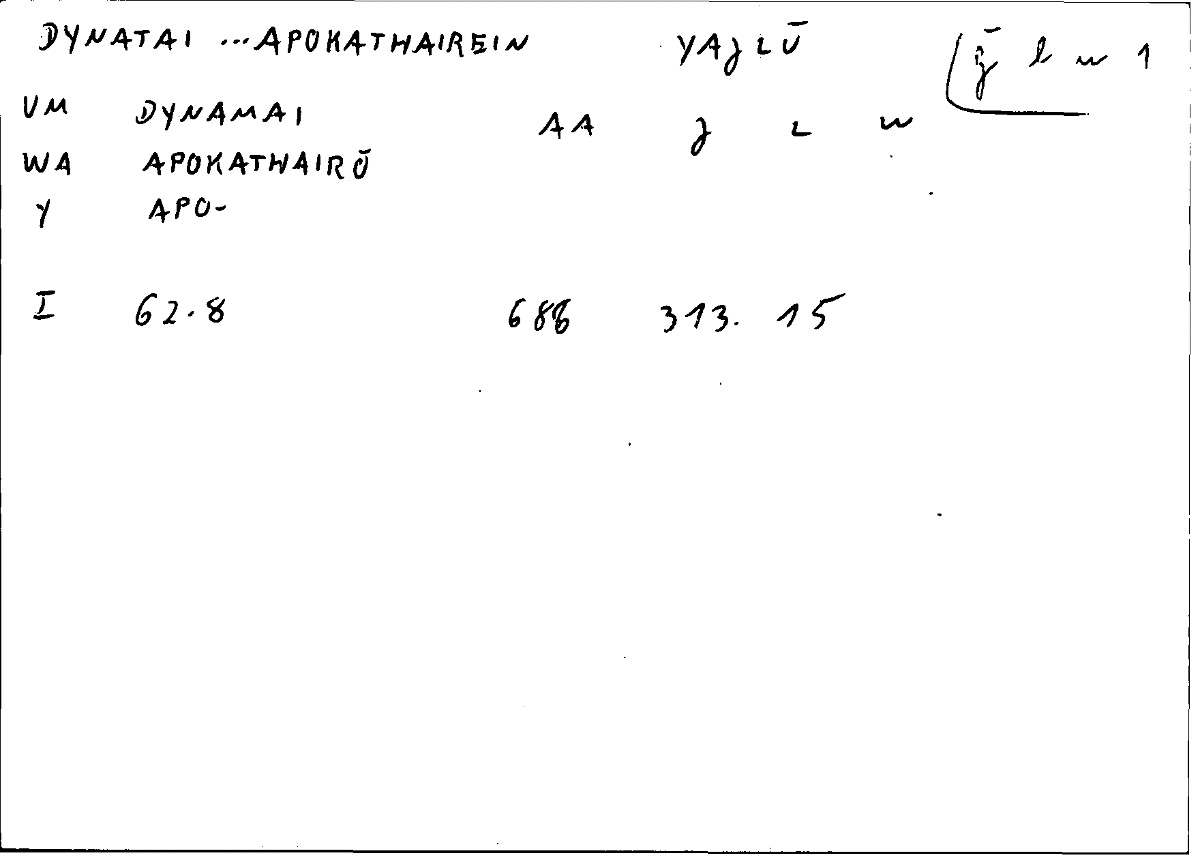 DYNATAI ...APOKATHAIREIN YAJLŪ ǰ l w 1
VM DYNAMAI AA J L w
WA APOKATHAIRŌ
Y APO-
I 62.8 688 313. 15